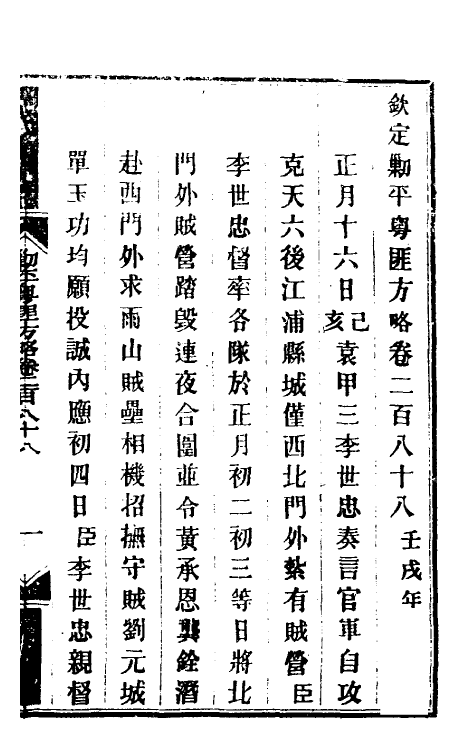 欽定勦平粵匪方略卷二百八十八 壬戌年
正月十六日己亥袁甲三李世忠奏言官軍自攻
克天六後江浦縣城僅西北門外紮有賊營臣
李世忠督率各隊於正月初二初三等日將北
門外賊營踏毀連夜合圍並令黃承恩龔銓潛
赴西門外求雨山賊壘相機招撫守賊劉元城
單玉功均願投誠內應初四日臣李世忠親督
勦平粵匪方略卷二百八十八
一